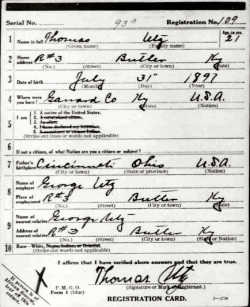 Serial No. 930 Registration No. 109
1 Name in full Thomas Utz Age, in yrs. 21
(Given name) (Family name)
2 Home address R#3 Butler Ky
(No.) (Street) (City or town) (State)
3 Date of birth July 31" 1897
(Month) (Day) (Year)
4 Where were you born? Garrard Co Ky U.S.A.
(City or town) (State) (Nation)
5 I am
1. A native of the United States.
2. A naturalized citizen.
3. An alien.
4. I have declared my intention.
5. Noncitizen or citizen Indian.
(Strike out lines or words not applicable)
6 If not a citizen, of what Nation are you a citizen or subject?
7 Father's birthplace Cincinnati Ohio U.S.A.
(City or town) (State or province) (Nation)
8 Name of employer George Utz
Place of employment R#3 Butler Ky
(No.) (Street) (City or town) (State)
9 Name of nearest relative George Utz
Address of nearest relative R#3 Butler Ky
(No.) (Street) (City or town) (State or Nation)
10 Race—White, Negro, Indian, or Oriental
(Strike out words not applicable)
I affirm that I have verified above answers and that they are true.
X
Thomas Utz
P. M. G. O.
Form 1 (blue)
(Signature or Mark of Registrant.)
REGISTRATION CARD.